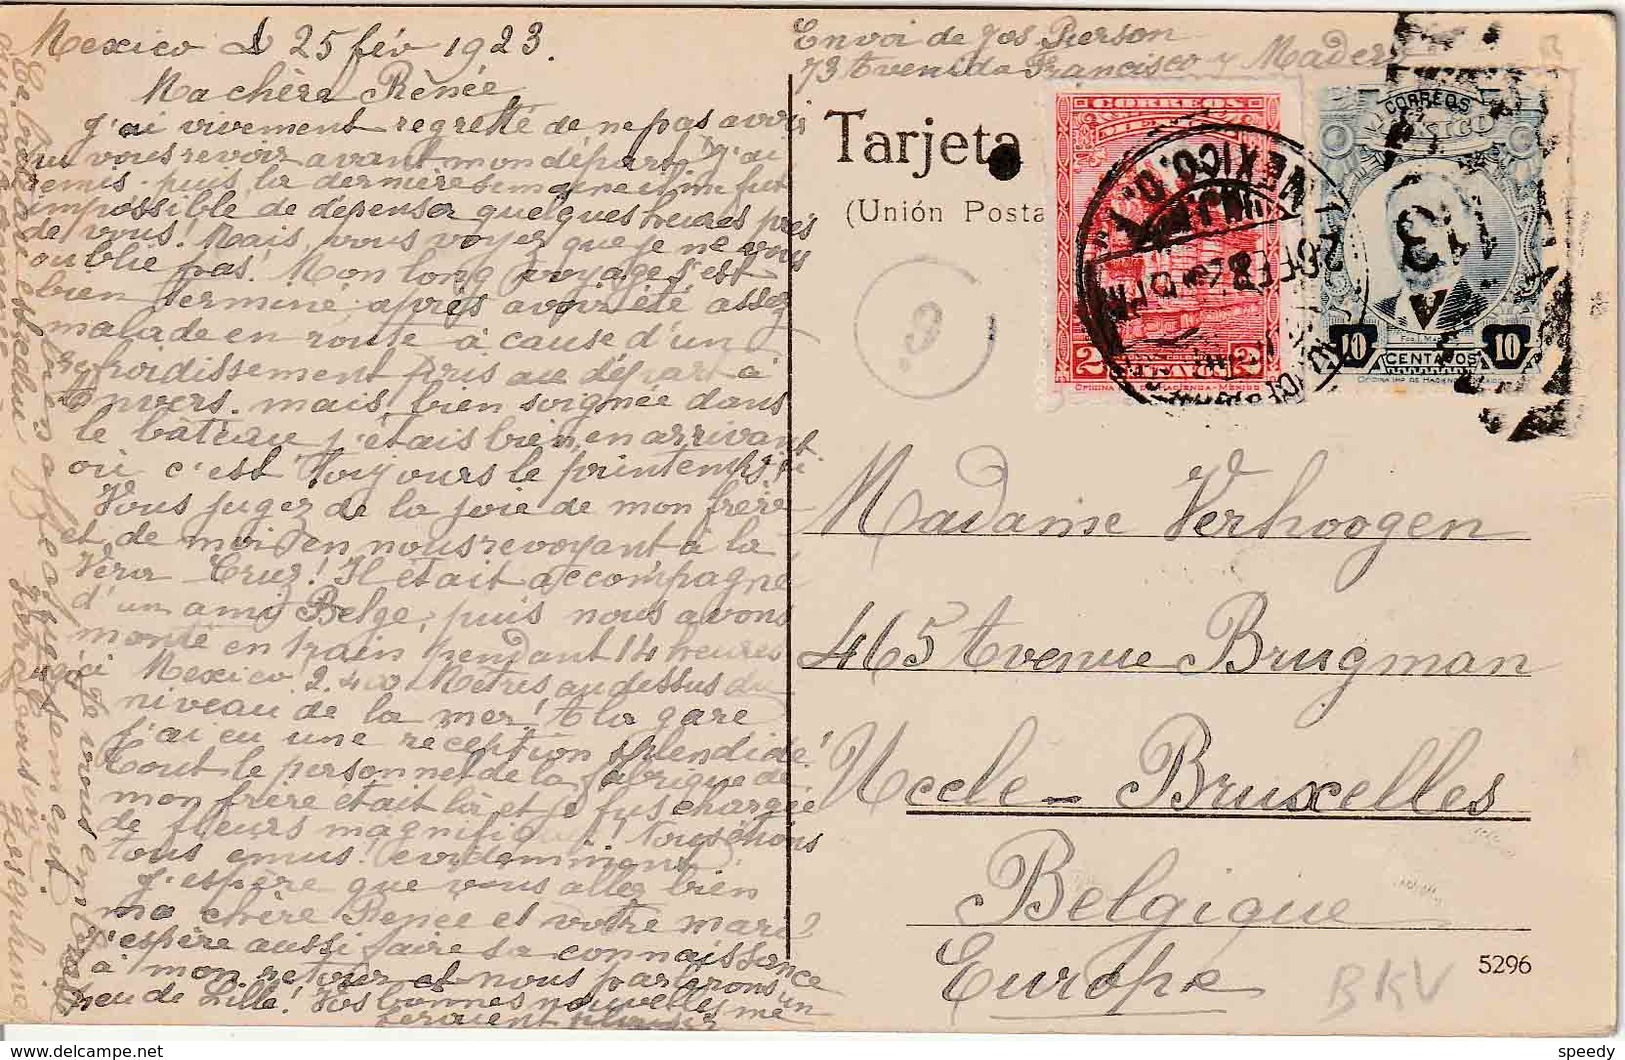 Mexico 25 fév 1923.
Ma chère Rènée
J'ai vivement regretté de ne pas avoir
pu vous revoir avant mon départ. J'ai
remis puis la dernière semaine il me fut
impossible de dépenser quelques heures près
de vous! Mais, vous voyez que je ne vous
oublie pas! Mon long voyage s'est
bien terminé après avoir été assez
malade en route à cause d'un
refroidissement pris au départ à
Anvers. mais, bien soignée dans
le bateau j'étais bien, en arrivant
où c'est toujours le printemps ici.
Vous jugez de la joie de mon frère
et de moi en nous revoyant à la
Vera Cruz! Il était accompagné
d'un ami Belge, puis nous avons
monté en train pendant 14 heures
Mexico 2.400 Mètres au dessus du
niveau de la mer! A la gare
j'ai eu une réception splendide!
tout le personnel de la fabrique de
mon frère était là et je fus chargée
de fleurs magnifiques! Nous étions
tous émus! évidemment.
J'espère que vous allez bien
ma chère Renée et votre mari?
J'espère aussi faire sa connaissance
à mon retour et nous parlerons un
peu de Lille! Vos bonnes nouvelles me
feraient plaisir
Envoi de Jos Pierson
73 Avenida Francisco y Madero
Tarjeta
(Unión Posta
CORREOS
MEXICO. D.F.
26 FEB
2 CENTAVOS 2
OFICINA IMP DE HACIENDA-MEXICO
CORREOS
MEXICO
13
10 CENTAVOS 10
OFICINA IMP DE HACIENDA-MEXICO
Madame Verhoogen
465 Avenue Brugman
Uccle-Bruxelles
Belgique
Europe
5296
BKV
© delcampe.net
speedy